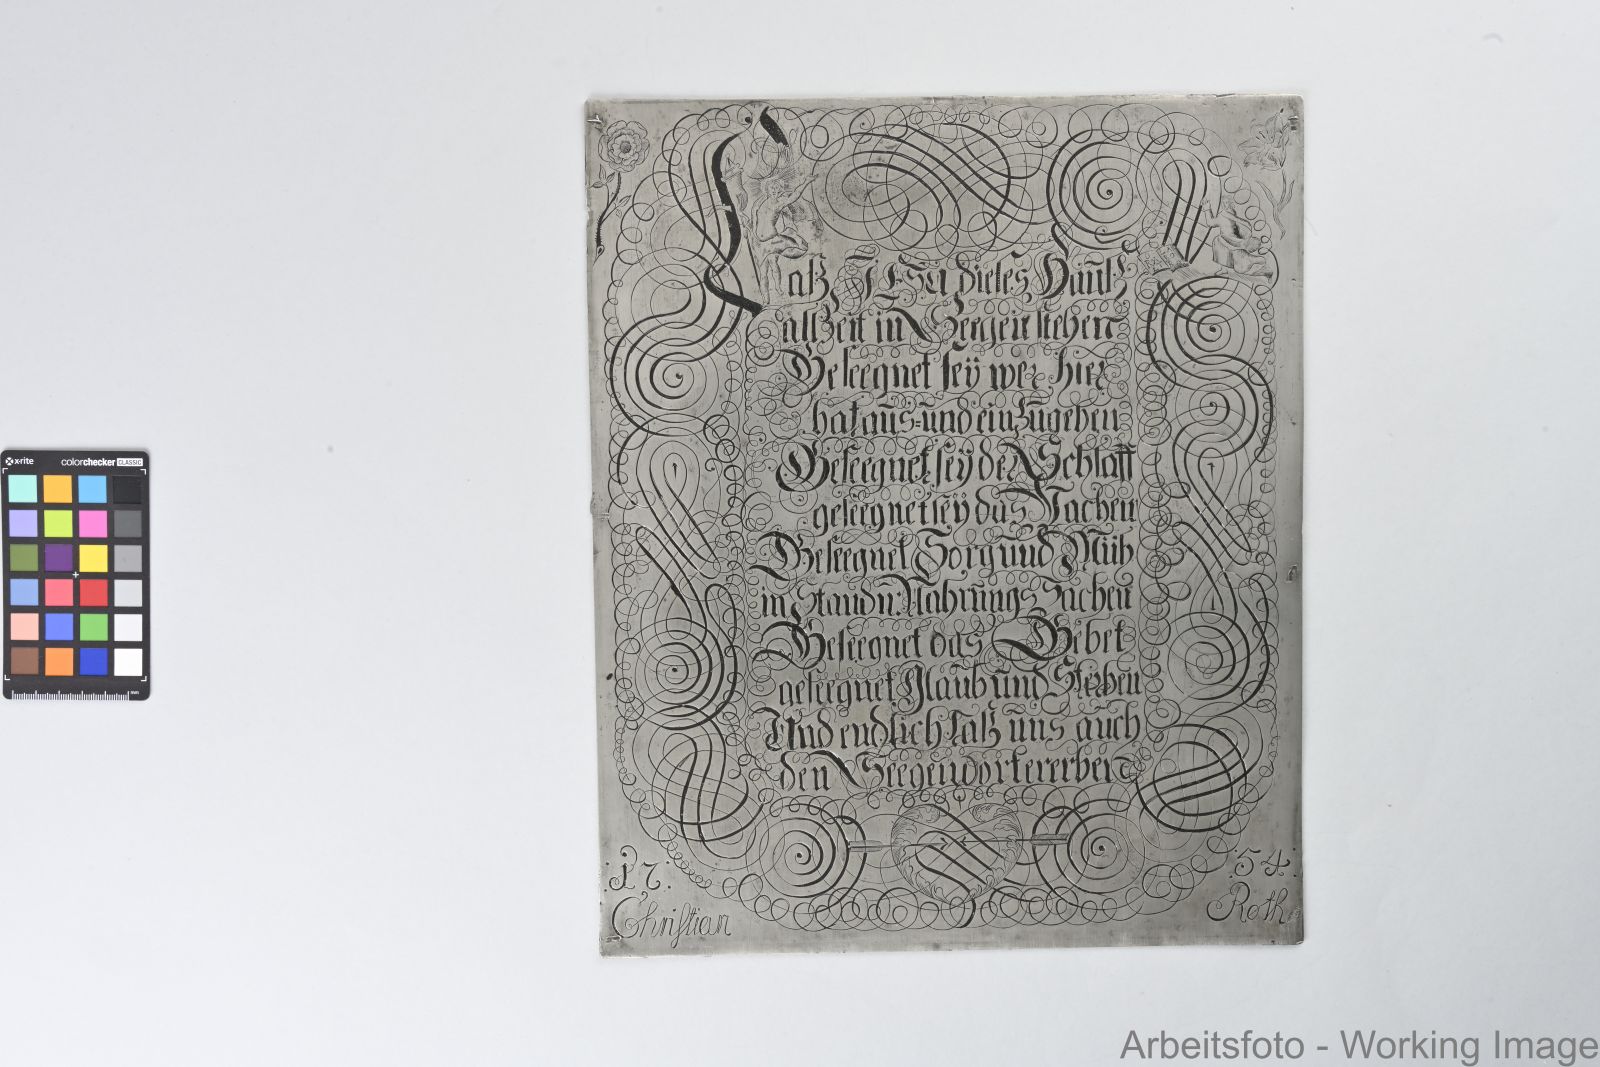 Laß JESU dieses Hauß
allzeit in Seegen stehen
Geseegnet seÿ wer hier
hat aus= und einzugehen
Geseegnet seÿ der Schlaff
geseegnet seÿ das Wachen
Geseegnet Sorg und Müh
in Stand u. Nahrungs Sachen
Geseegnet das Gebet
geseegnet Glaub und Sterben
Und endlich laß uns auch
den Seegen dort ererben
17 54
Christian Roth
x-rite colorchecker CLASSIC
Arbeitsfoto - Working Image